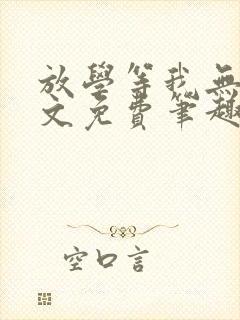 放學等我無
文免費筆趣
空口言